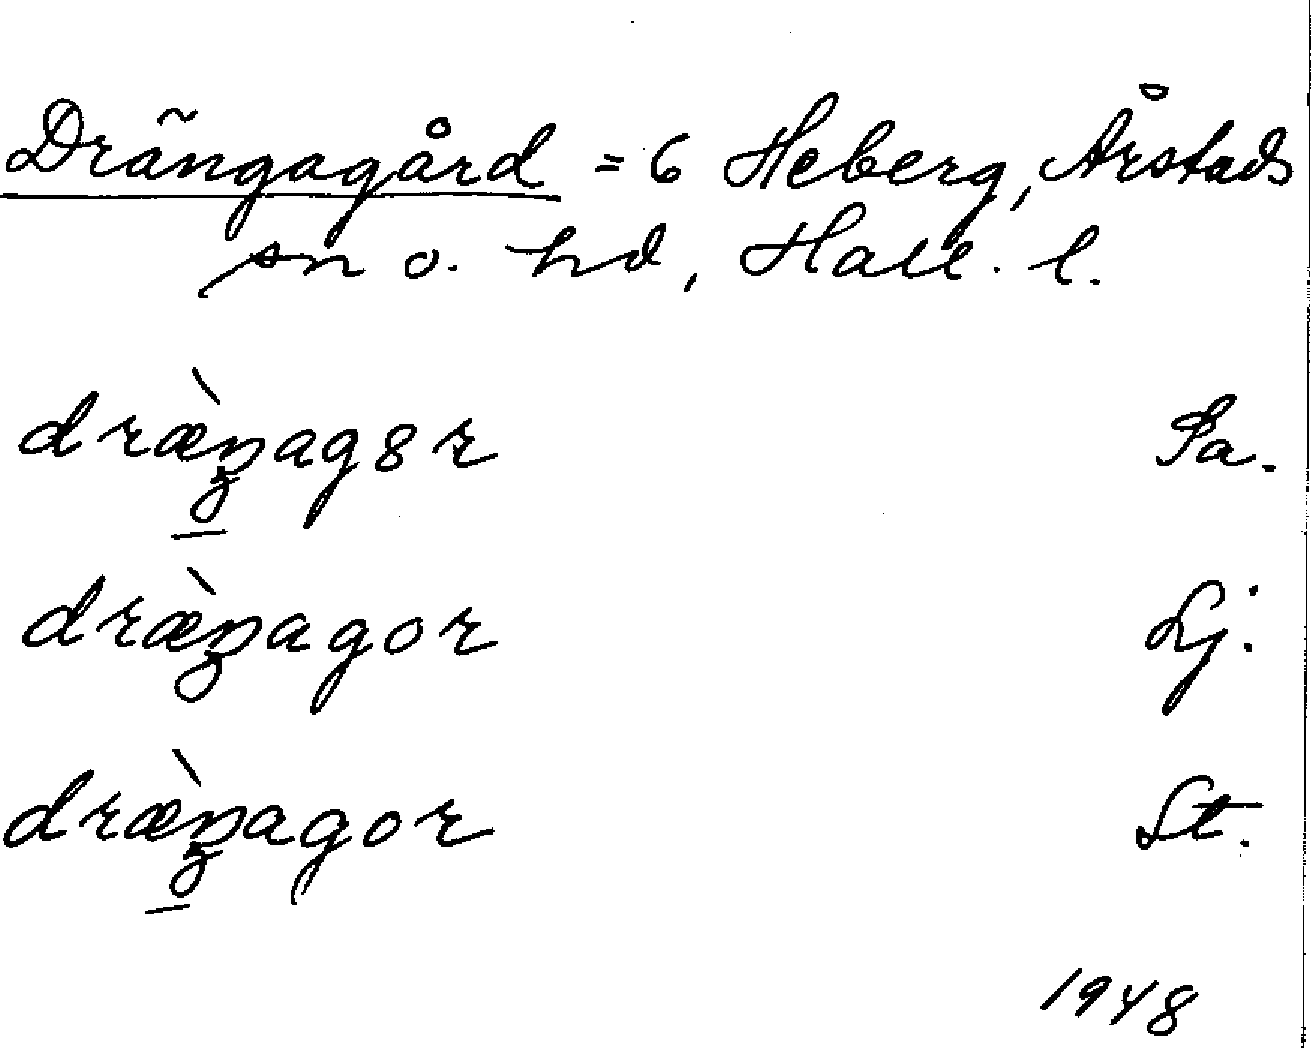 Drängagård = 6 Heberg, Årstads
sn o. hd, Hall. l.
dræ̀ŋagȣr Sa.
dræ̀ŋagor Lj.
dræ̀ŋagor St.
1948